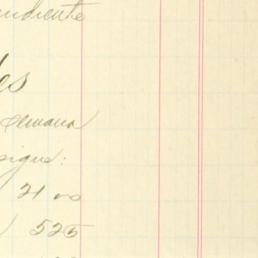 ndiente
les
semana
sigue:
21 00
) 525